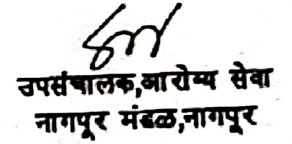 उपसंचालक,आरोग्य सेवा
नागपूर मंडळ,नागपूर